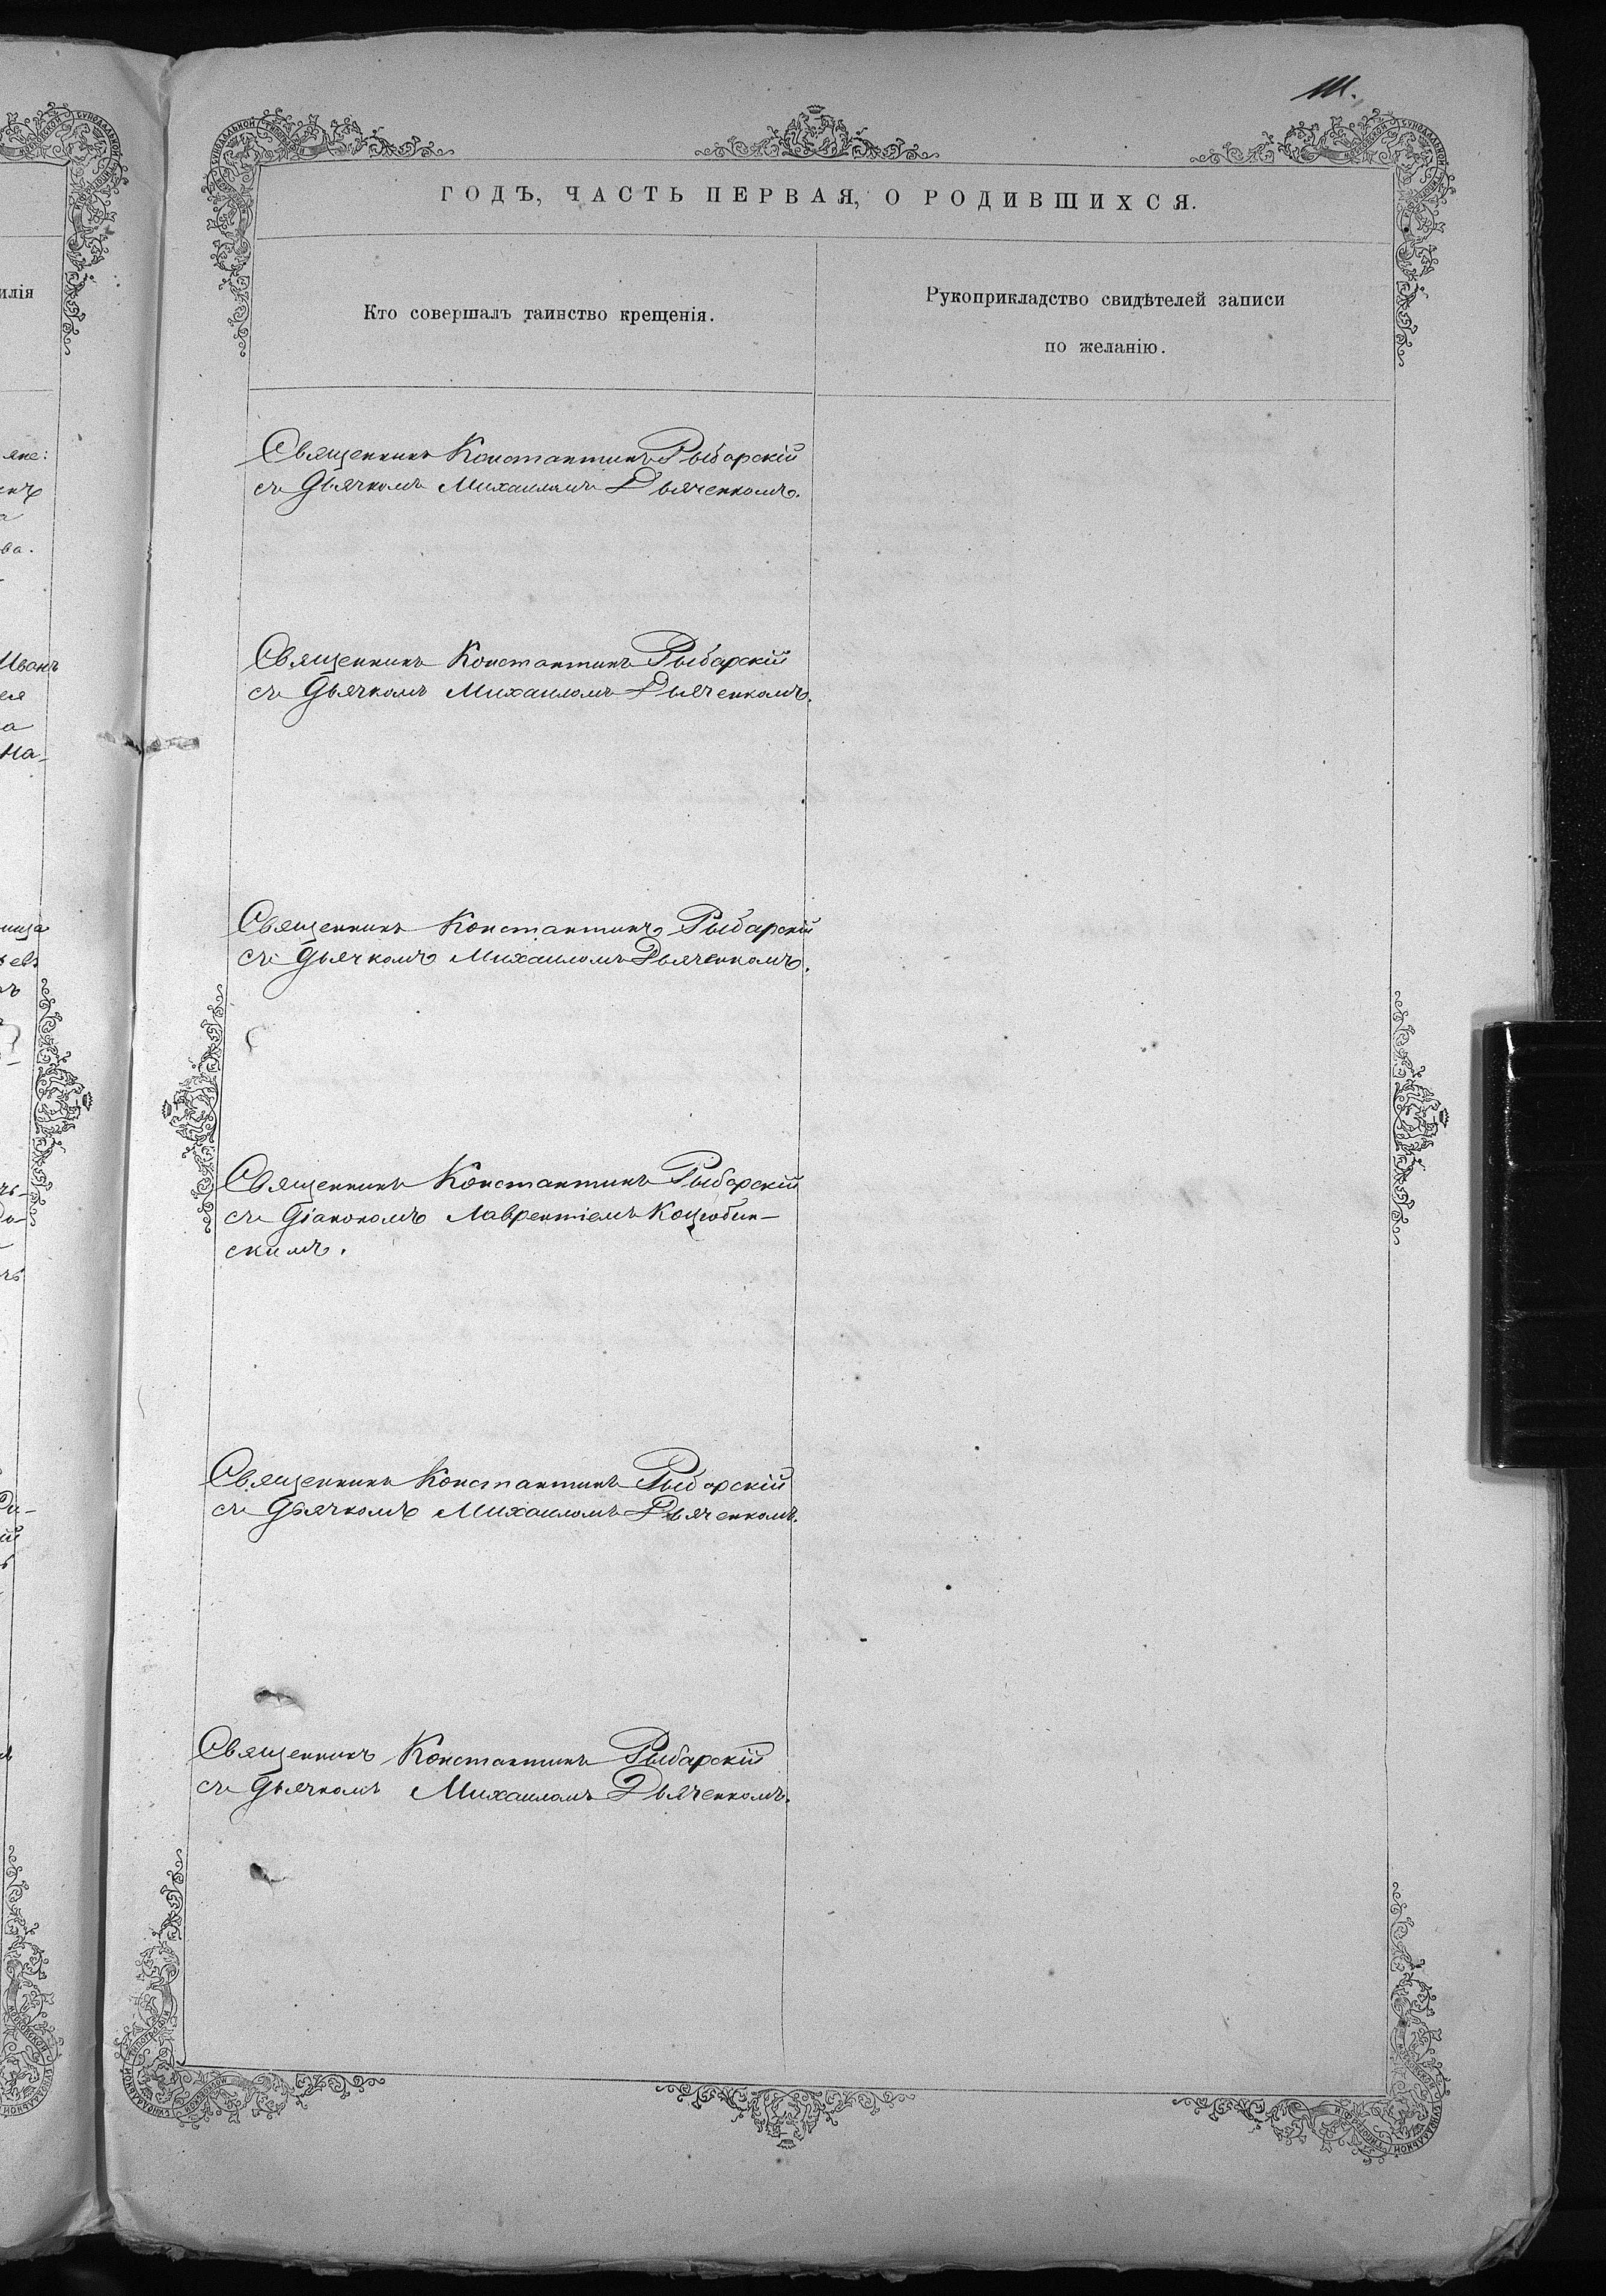 111.
ГОДЪ, ЧАСТЬ ПЕРВАЯ, О РОДИВШИХСЯ.
Кто совершалъ таинство крещенія.
Рукоприкладство свидѣтелей записи
по желанію.
Священникъ Константинъ Рыбарскій
съ Дьячкомъ Михаиломъ Дьяченкомъ.
Священникъ Константинъ Рыбарскій
съ Дьячкомъ Михаиломъ Дьяченкомъ.
Священникъ Константинъ Рыбарскій
съ Дьячкомъ Михаиломъ Дьяченкомъ.
Священникъ Константинъ Рыбарскій
съ Діакономъ Лаврентіемъ Коцюбин-
скимъ.
Священникъ Константинъ Рыбарскій
съ Дьячкомъ Михаиломъ Дьяченкомъ.
Священникъ Константинъ Рыбарскій
съ Дьячкомъ Михаиломъ Дьяченкомъ.
илія
яне:
ва.
Иванъ
а
На-